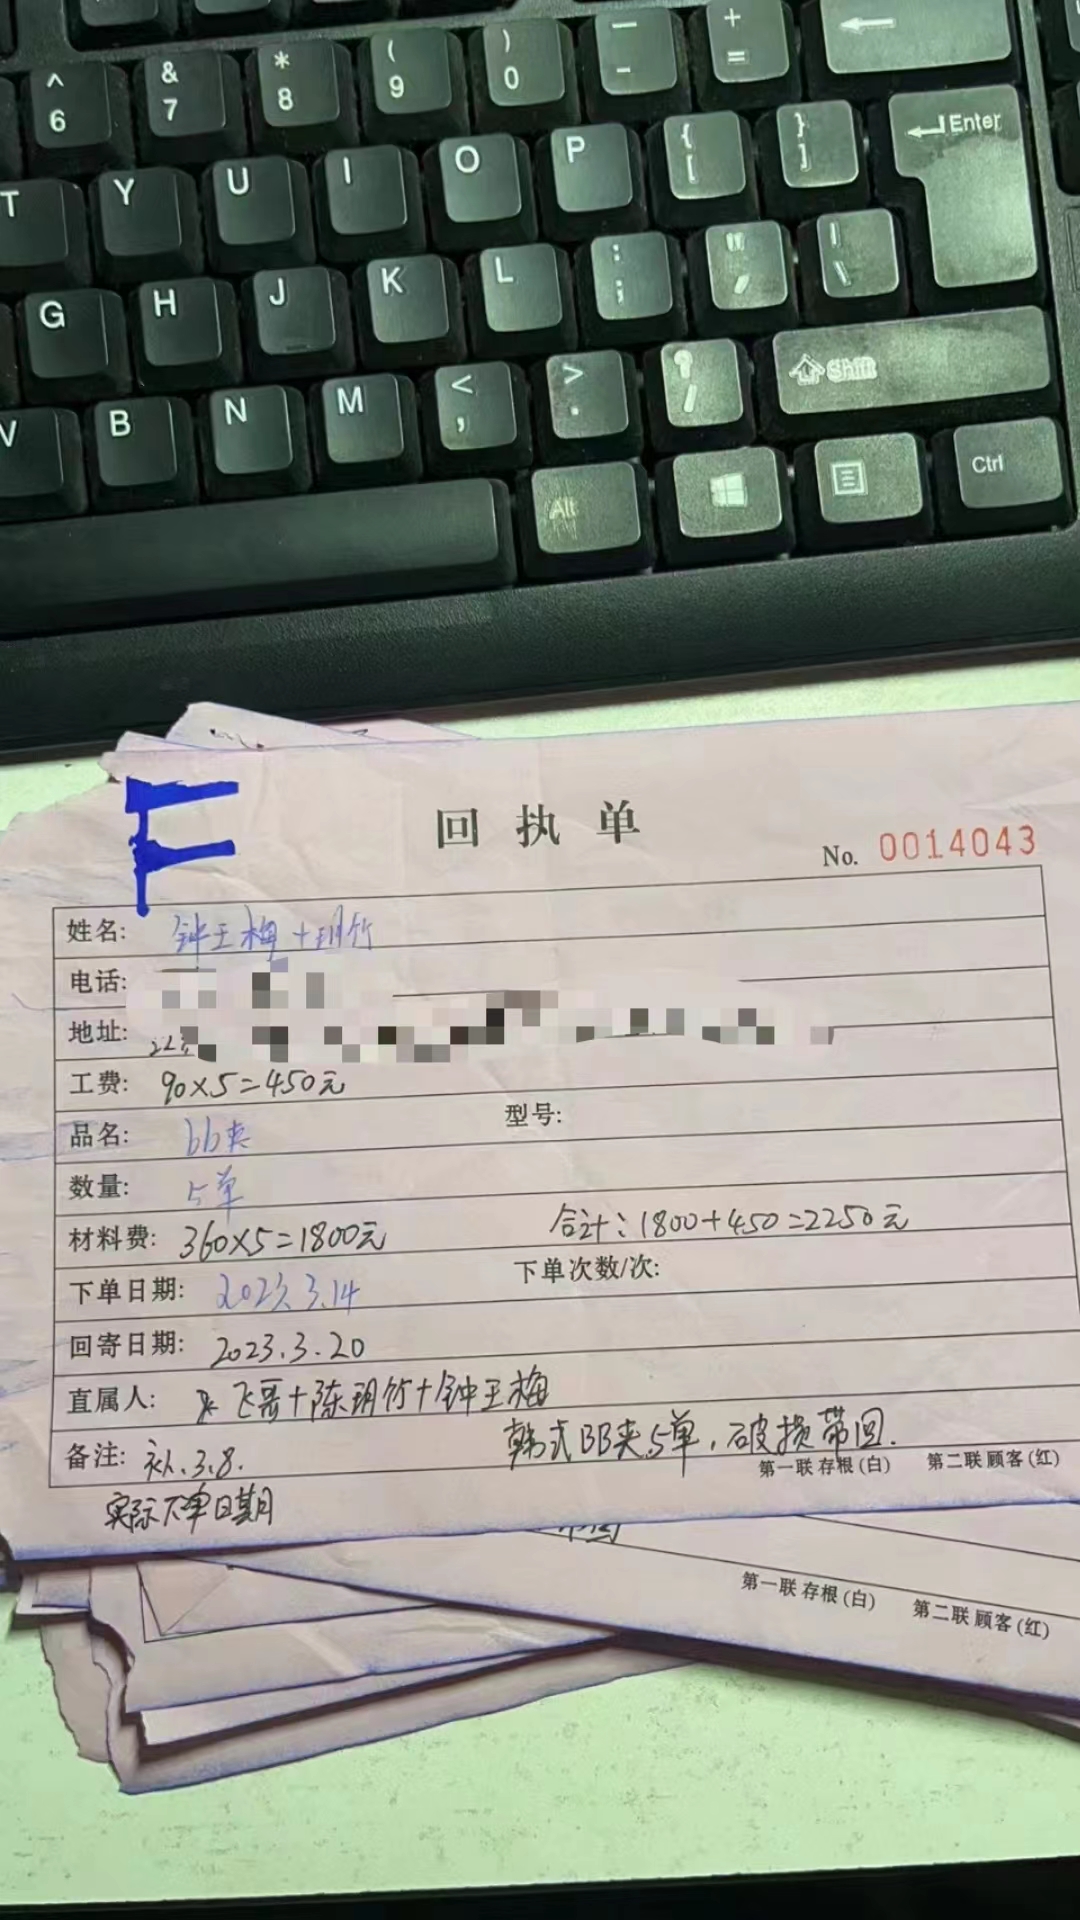 ^ 6 & 7 * 8 ( 9 ) 0 — - + =
T Y U I O P { [ } ] Enter
G H J K L : ; " ' | \
V B N M < , > . ? / Shift
Alt Ctrl
F
回执单
No. 0014043
姓名: 钟王梅+玥竹
电话:
地址:
工费: 90×5=450元
品名: bb夹 型号:
数量: 5单
材料费: 360×5=1800元 合计: 1800+450=2250元
下单日期: 2023.3.14 下单次数/次:
回寄日期: 2023.3.20
直属人: 飞哥+陈玥竹+钟王梅
备注: 补.3.8. 韩式BB夹5单,破损带回.
实际下单日期
第一联 存根(白) 第二联 顾客(红)
第一联 存根(白) 第二联 顾客(红)